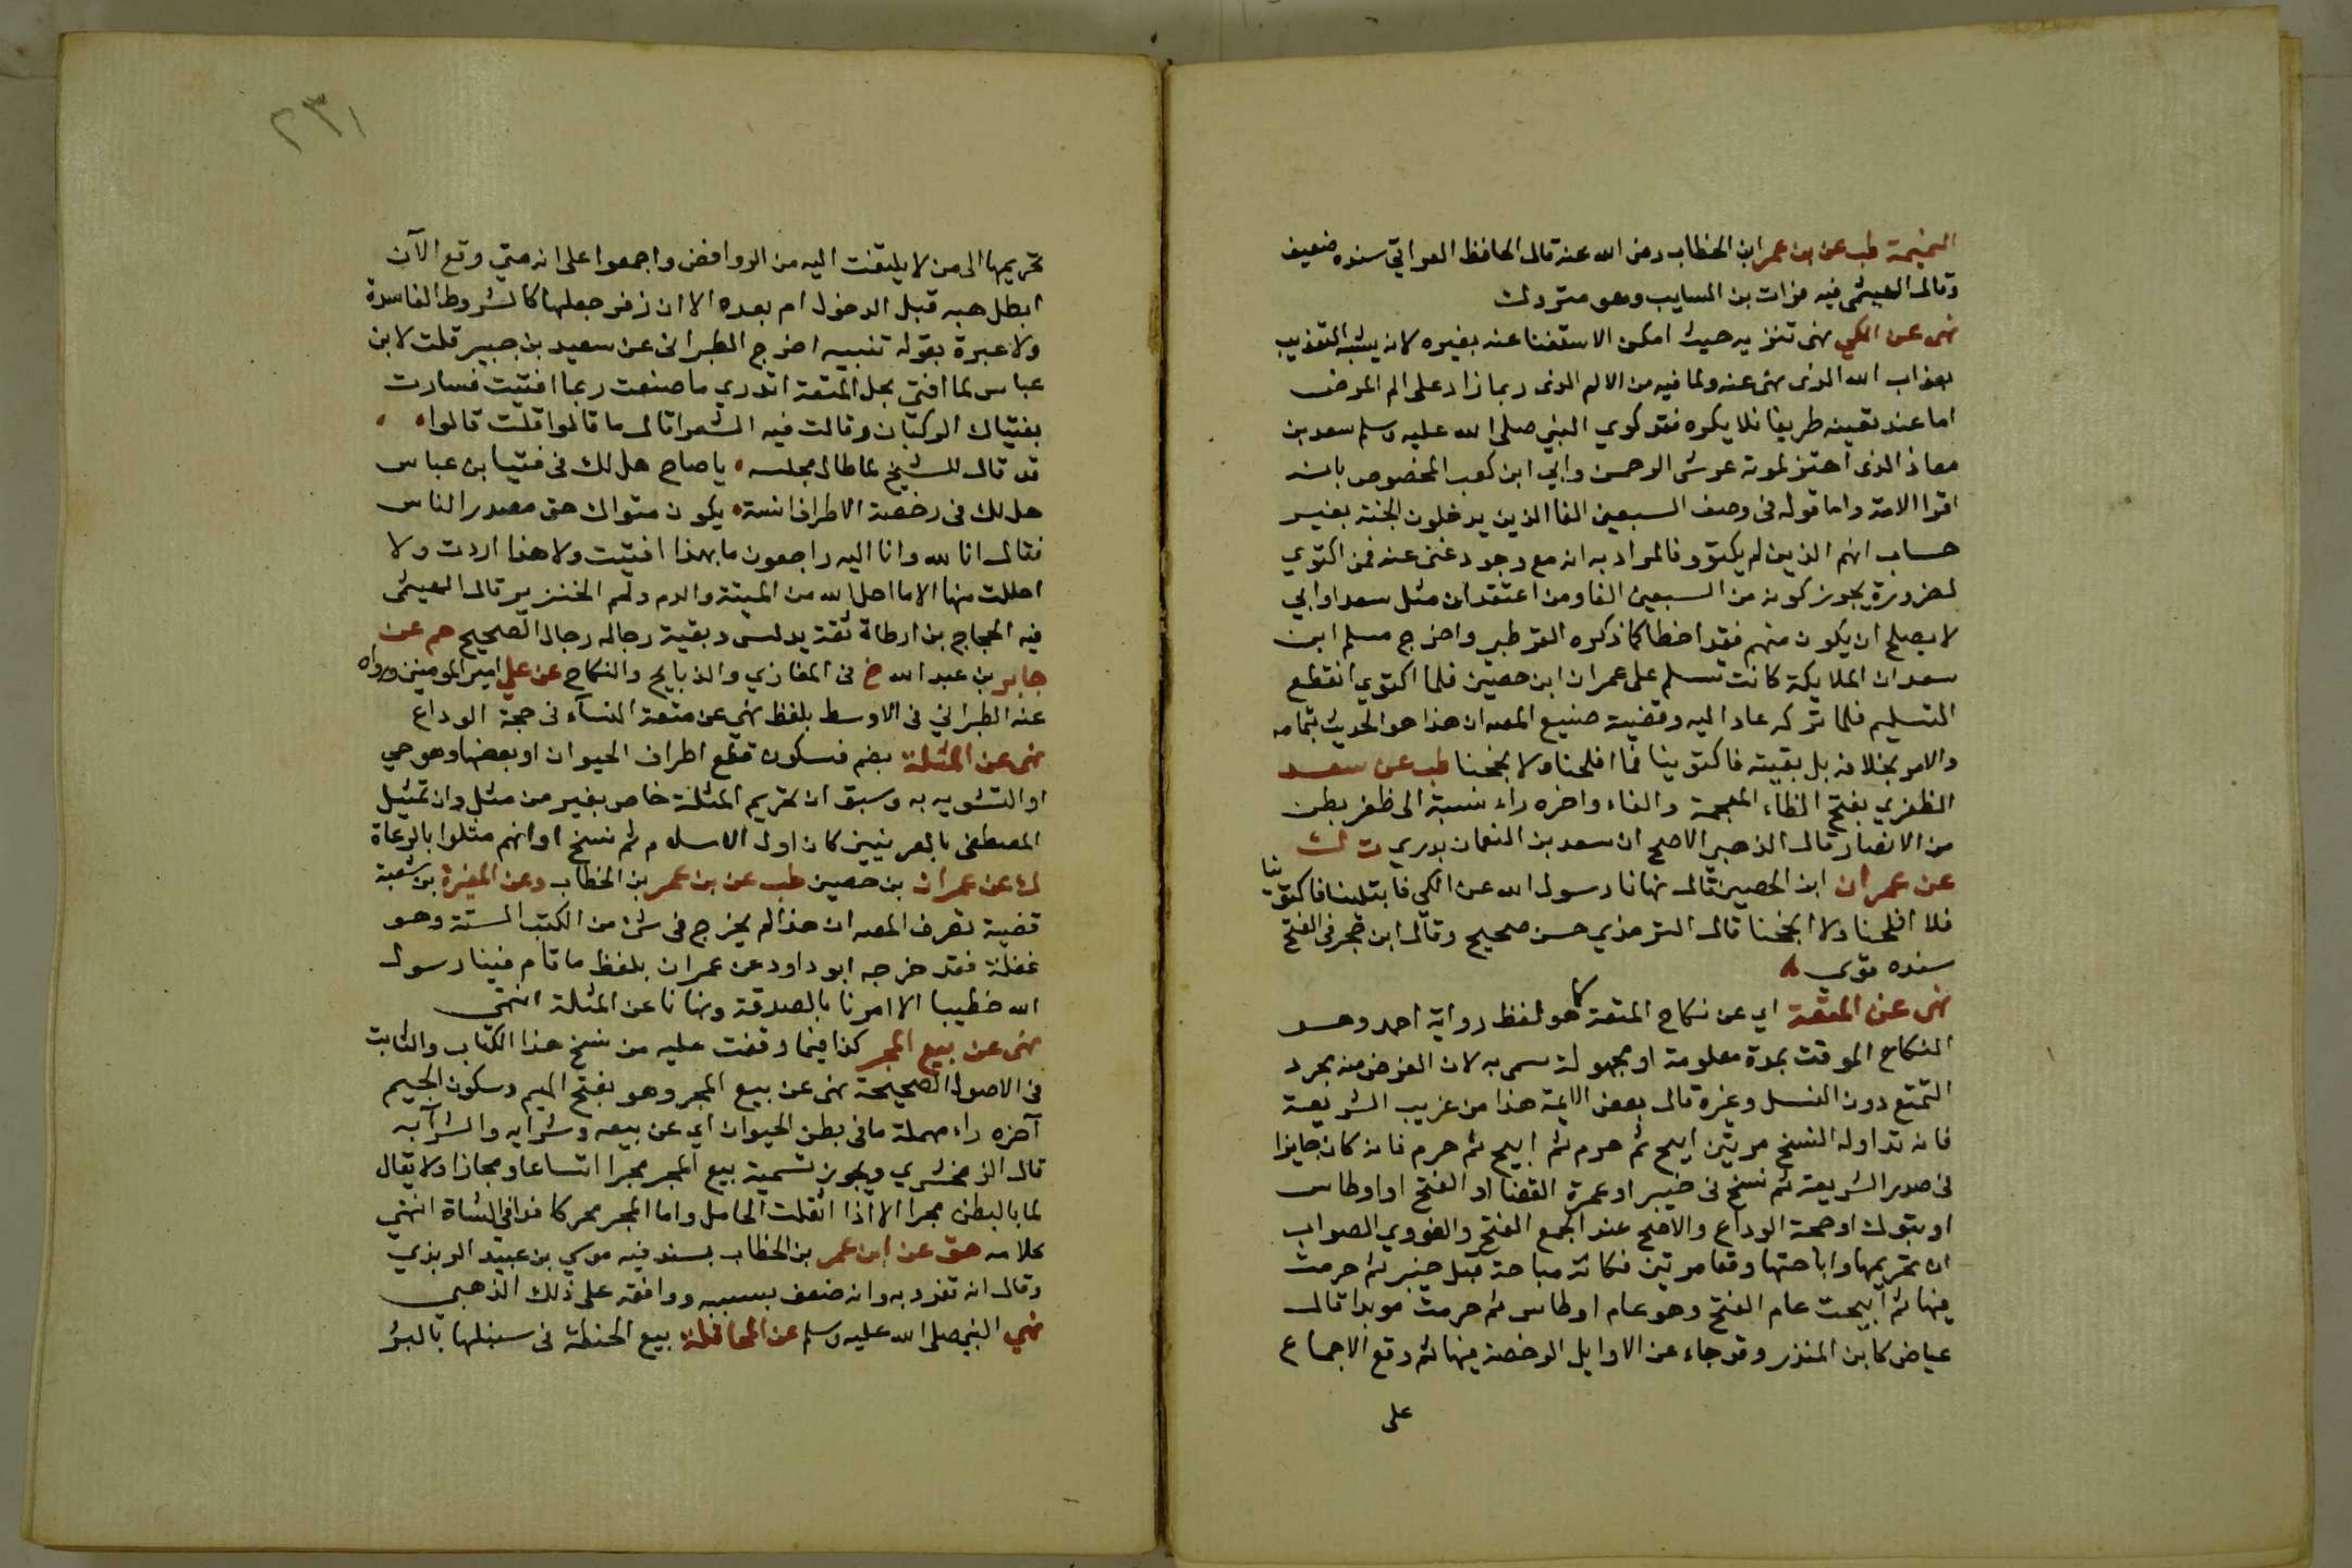 النميمة طب عن ابن عمر ابن الخطاب رضي الله عنه قال الحافظ العراقي سنده ضعيف
وقال الهيثمي فيه فرات بن السايب وهو متروك
نهى عن الكي نهى تنزيه حيث امكن الاستغنا عنه بغيره لانه يشبه التعذيب
بعذاب الله الذي نهى عنه ولما فيه من الالم الذي ربما زاد على الم المرض
اما عند تعينه طريقا فلا يكره فقد كوي النبي صلى الله عليه وسلم سعد بن
معاذ الذي اهتز لموته عرش الرحمن وابي ابن كعب المخصوص بانه
اقرا الامة واما قوله في وصف السبعين الفا الذين يدخلون الجنة بغير
حساب انهم الذين لم يكتووا فالمراد به انه مع وجود غنى عنه فمن اكتوي
لضرورة يجوز كونه من السبعين الفا ومن اعتقد ان مثل سعد او ابي
لا يصلح ان يكون منهم فقد اخطا كما ذكره القرطبي واخرج مسلم ابن
سعد ان الملايكة كانت تسلم على عمران ابن حصين فلما اكتوي انقطع
التسليم فلما تركه عاد اليه وقضية صنيع المص ان هذا هو الحديث بتمامه
والامر بخلافه بل بقيته فاكتوينا فما افلحنا ولا نجحنا طب عن سعد
الظفري بفتح الظاء المعجمة والفاء واخره راء نسبة الى ظفر بطن
من الانصار قال الذهبي الاصح ان سعد بن النعمان بدري ت ك
عن عمران ابن الحصين قال نهانا رسول الله عن الكي فابتلينا فاكتوينا
فلا افلحنا ولا انجحنا قال الترمذي حسن صحيح وقال ابن حجر في الفتح
سنده قوي
نهى عن المتعة اي عن نكاح المتعة كما هو لفظ رواية احمد وهو
النكاح الموقت بمدة معلومة او مجهولة سمى به لان الغرض منه مجرد
التمتع دون النسل وغيره قال بعض الايمة هذا من غريب الشريعة
فانه تداوله النسخ مرتين ابيح ثم حرم ثم ابيح ثم حرم فانه كان جايزا
في صدر الشريعة ثم نسخ في خيبر او عمرة القضا او الفتح او اوطاس
او تبوك او حجة الوداع والاصح عند الجمع الفتح والنووي الصواب
ان تحريمها واباحتها وقعا مرتين فكانت مباحة قبل خيبر ثم حرمت
فيها ثم ابيحت عام الفتح وهو عام اوطاس ثم حرمت موبدا قال
عياض كابن المنذر وقد جاء عن الاوايل الرخصة فيها ثم وقع الاجماع
على
٢٣١
تحريمها الى من لا يلتفت اليه من الروافض واجمعوا على انه متي وقع الآن
ابطل حبه قبل الدخول ام بعده الا ان زفر جعلها كالشروط الفاسدة
ولا عبرة بقوله تنبيه اخرج الطبراني عن سعيد بن جبير قلت لابن
عباس لما افتى بحل المتعة اتدري ما صنعت ربما افتيت فسارت
بفتياك الركبان وقالت فيه الشعرا قال ما قالوا قلت قالوا
قد قال للشيخ لما طال مجلسه يا صاح هل لك في فتيا ابن عباس
هل لك في رخصة الاطراف انسة يكون مثواك حتى مصدر الناس
فقال انا لله وانا اليه راجعون ما بهذا افتيت ولا هذا اردت ولا
احللت منها الا ما احل الله من الميتة والدم ولحم الخنزير قال الهيثمي
فيه الحجاج بن ارطاة ثقة يدلس وبقية رجاله رجال الصحيح حم عن
جابر بن عبد الله خ في المغازي والذبايح والنكاح عن علي امير المومنين ورواه
عنه الطبراني في الاوسط بلفظ نهى عن متعة النسآء في حجة الوداع
نهى عن المثلة بضم فسكون قطع اطراف الحيوان او بعضها وهو حي
او التشويه به وسبق ان تحريم المثلة خاص بغير من مثل وان تمثيل
المصطفى بالعرنيين كان اول الاسلام ثم نسخ او انهم مثلوا بالرعاة
ك عن عمران بن حصين طب عن بن عمر بن الخطاب وعن المغيرة بن شعبة
قضية تصرف المص ان هذا لم يخرج في شئ من الكتب الستة وهو
غفلة فقد خرجه ابو داود عن عمران بلفظ ما قام فينا رسول
الله خطيبا الا امرنا بالصدقة ونهانا عن المثلة انتهى
نهى عن بيع المجر كذا فيما وقفت عليه من نسخ هذا الكتاب والثابت
في الاصول الصحيحة نهى عن بيع المجر وهو بفتح الميم وسكون الجيم
آخره راء مهملة ما في بطن الحيوان اي عن بيعه وشرايه والشرآ به
قال الزمخشري ويجوز تسمية بيع المجر مجرا اتساعا ومجازا ولا يقال
لما بالبطن مجرا الا اذا اثقلت الحامل واما المجر محركا فدا في الشاة انتهي
كلامه هق عن ابن عمر بن الخطاب بسند فيه موسي بن عبيد الربذي
وقال انه تفرد به وانه ضعف بسببه ووافقه على ذلك الذهبي
نهي النبي صلى الله عليه وسلم عن المحاقلة بيع الحنطة في سنبلها بالبر